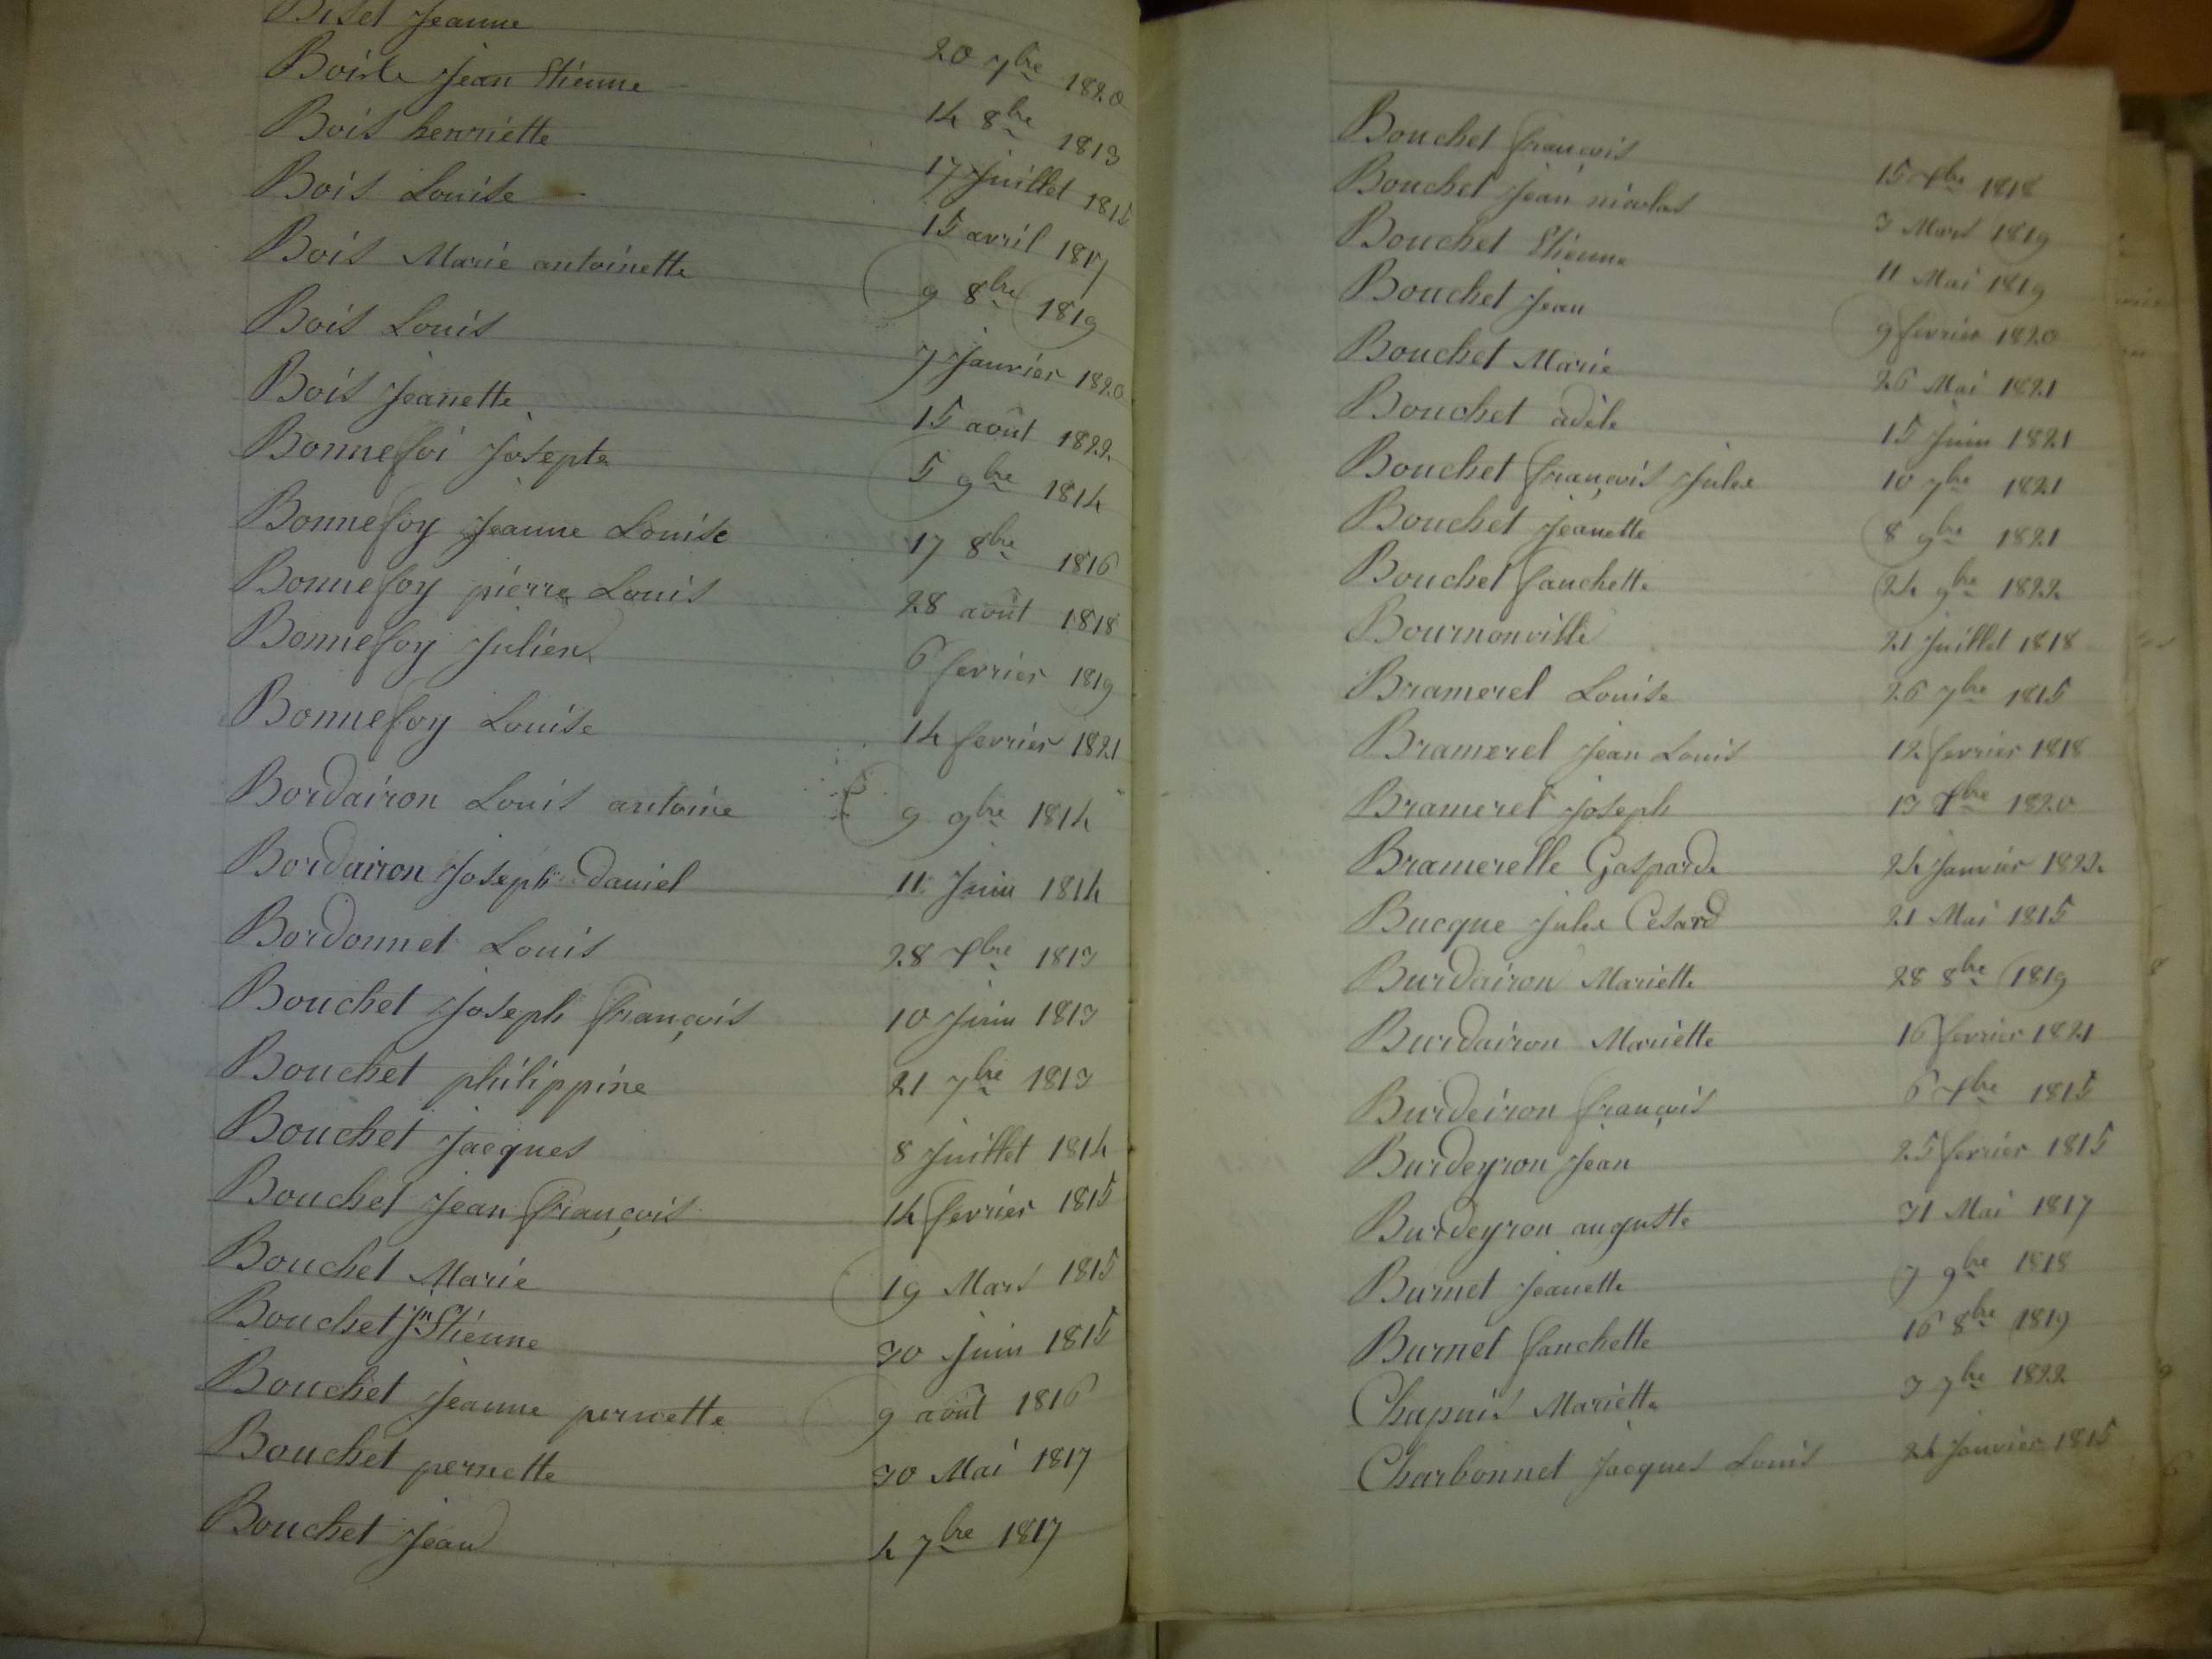 Biset Jeanne 20 7bre 1820
Boisle Jean Etienne 14 8bre 1813
Bois henriette 17 Juillet 1815
Bois Louise 15 avril 1817
Bois Marie antoinette 9 8bre 1819
Bois Louis 7 Janvier 1820
Bois Jeanette 15 août 1822
Bonnefoi Josepte 5 9bre 1814
Bonnefoy Jeanne Louise 17 8bre 1816
Bonnefoy pierre Louis 28 août 1818
Bonnefoy Julien 6 fevrier 1819
Bonnefoy Louise 14 fevrier 1821
Bordairon Louis antoine 9 9bre 1814
Bordairon Joseph daniel 11 Juin 1814
Bordonnet Louis 28 xbre 1813
Bouchet Joseph françois 10 Juin 1813
Bouchet philippine 21 7bre 1813
Bouchet Jacques 8 Juillet 1814
Bouchet Jean françois 14 fevrier 1815
Bouchet Marie 19 Mars 1815
Bouchet Jn Etienne 30 Juin 1815
Bouchet Jeanne pernette 9 août 1816
Bouchet pernette 30 Mai 1817
Bouchet Jean 4 7bre 1817
Bouchet françois 15 xbre 1818
Bouchet Jean nicolas 3 Mars 1819
Bouchet Etienne 11 Mai 1819
Bouchet Jean 9 fevrier 1820
Bouchet Marie 26 Mai 1821
Bouchet adele 15 Juin 1821
Bouchet françois Jules 10 7bre 1821
Bouchet Jeanette 8 9bre 1821
Bouchet fanchette 24 9bre 1822
Bournonville 21 Juillet 1818
Bramerel Louise 26 7bre 1815
Bramerel Jean Louis 12 fevrier 1818
Bramerel Joseph 13 xbre 1820
Bramerelle Gasparde 24 Janvier 1822
Bucque Jules Cesard 21 Mai 1815
Burdairon Mariette 28 8bre 1819
Burdairon Mariette 16 fevrier 1821
Burdeiron françois 6 xbre 1815
Burdeyron Jean 25 fevrier 1815
Burdeyron auguste 31 Mai 1817
Burnet Jeanette 7 9bre 1818
Burnet fanchette 16 8bre 1819
Chapuis Mariette 3 7bre 1822
Charbonnet Jacques Louis 24 Janvier 1815